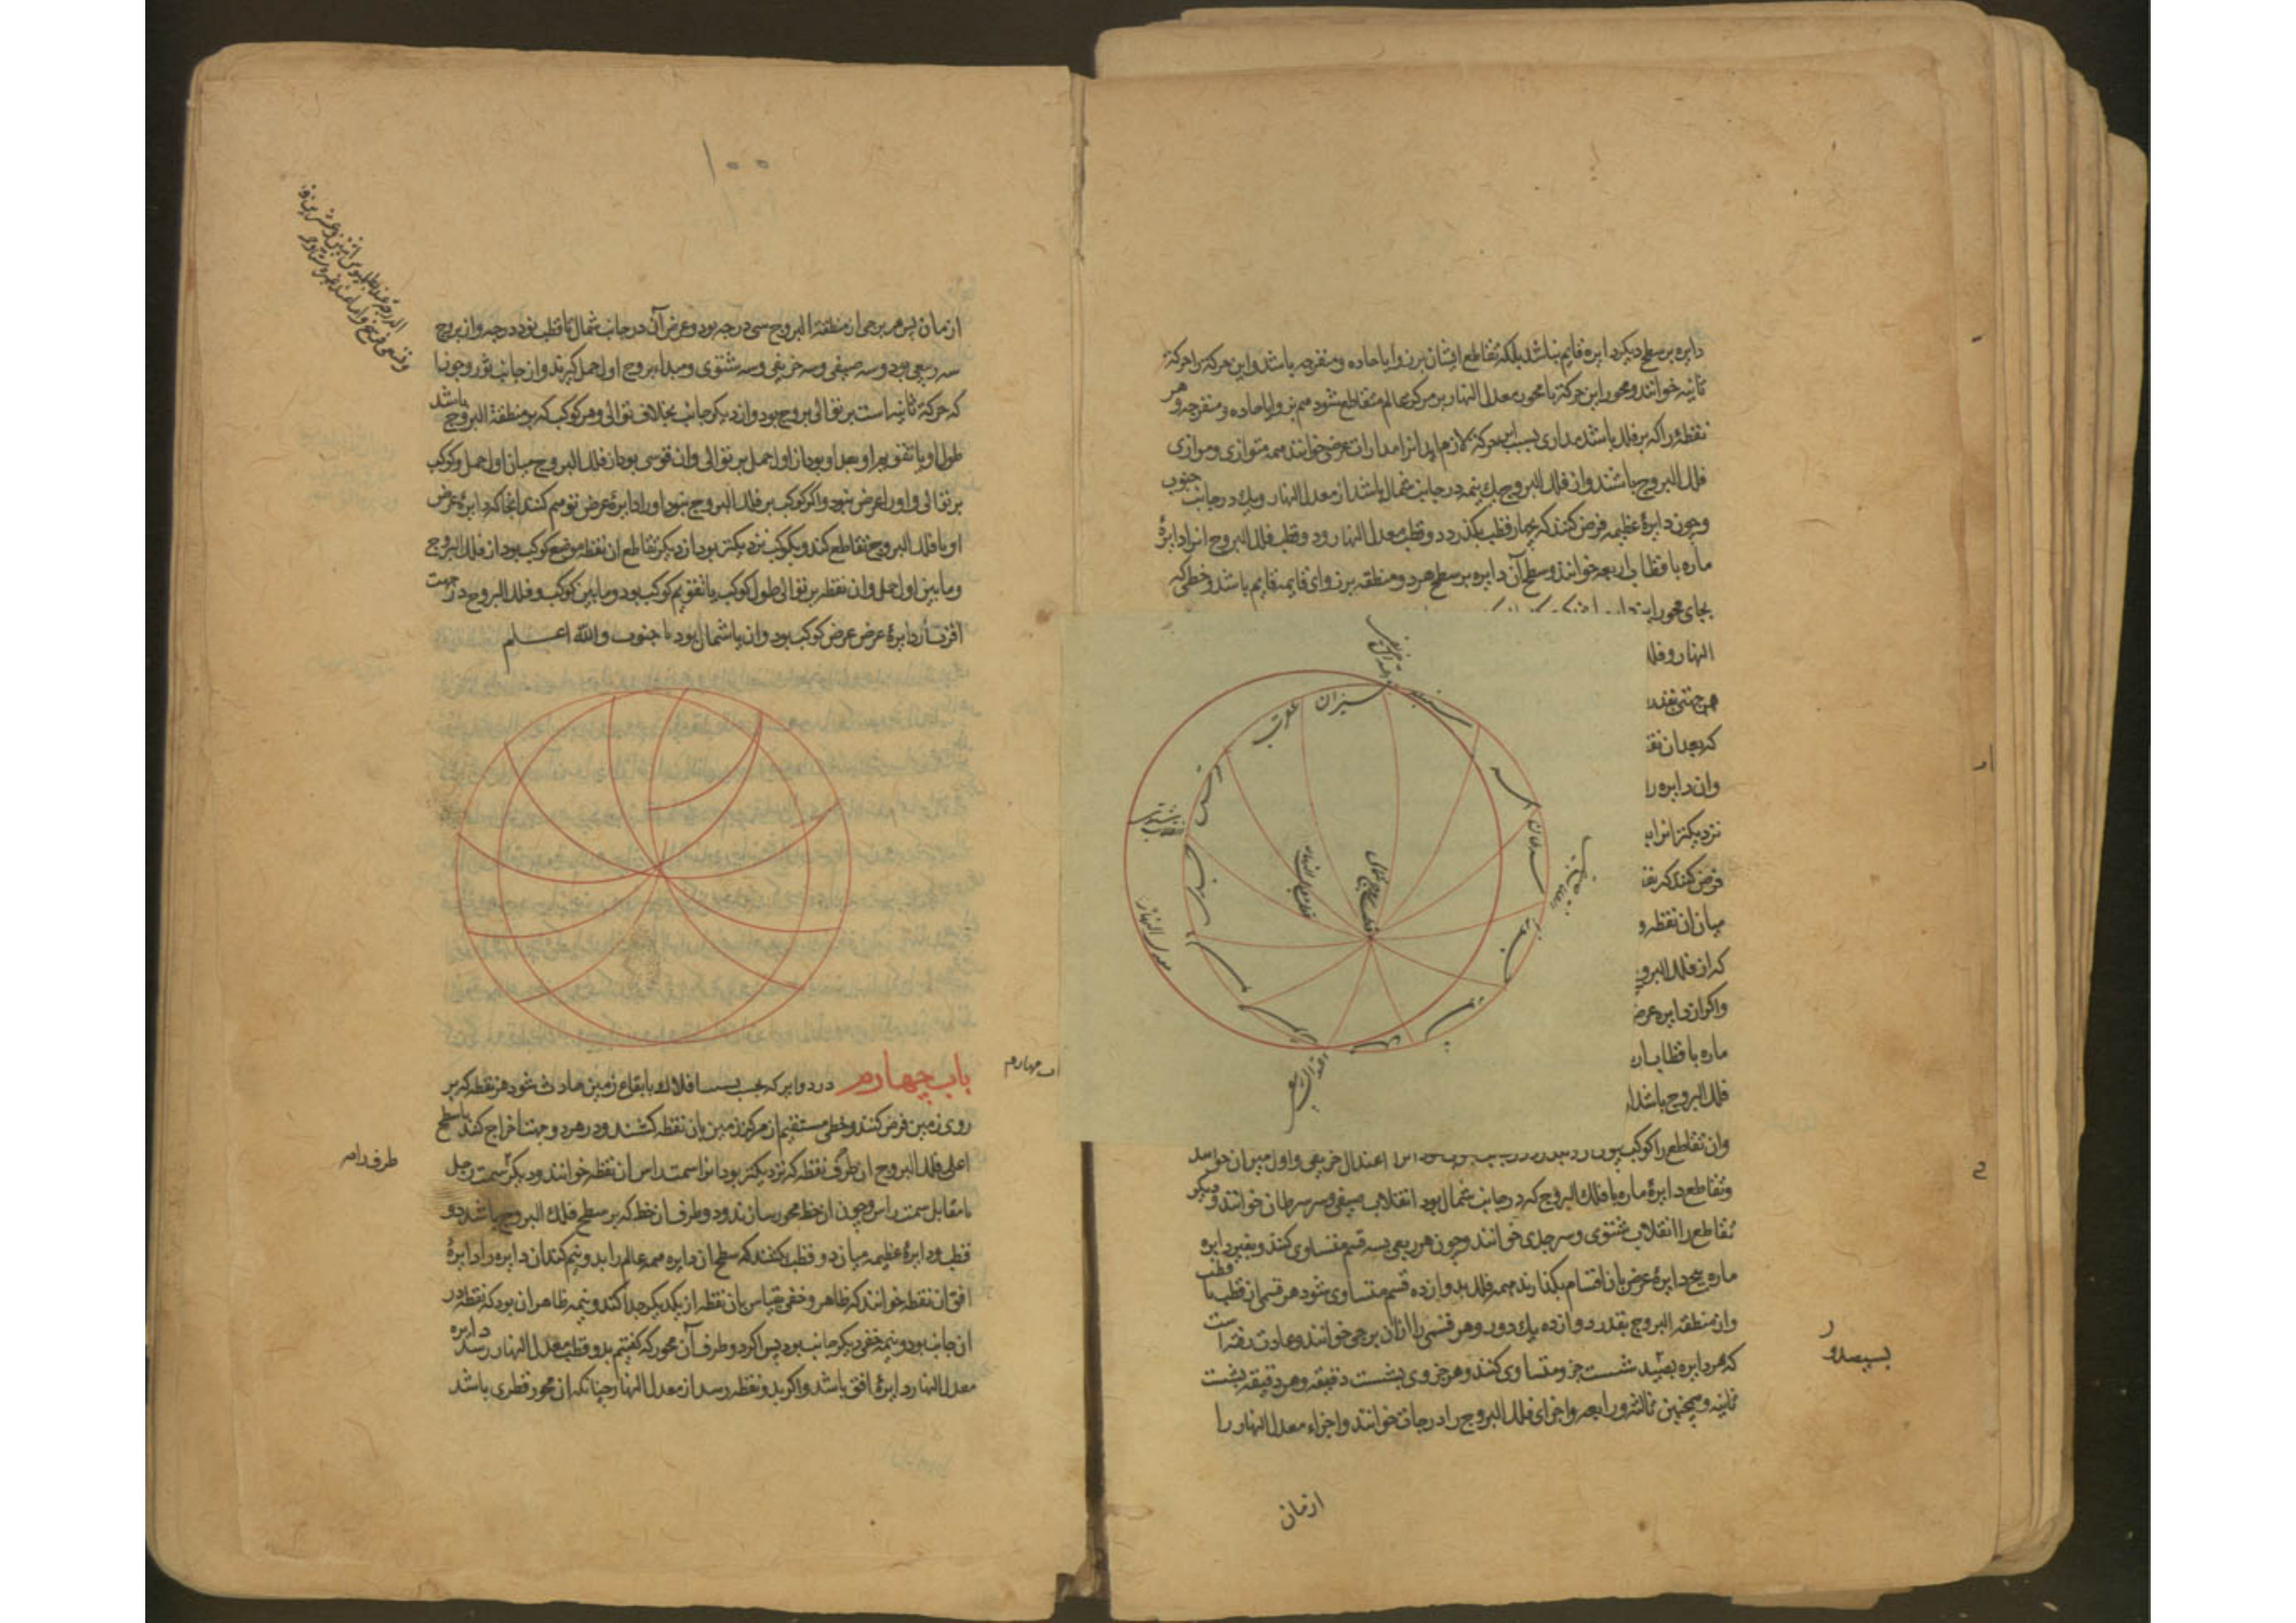 دایره بر سطح دیکر دایره قایم نباشد بلکه تقاطع ایشان بر زوایا حاده و منفرجه باشد و این حرکة را حرکة
ثانیه خوانند و محور این حرکة با محور معدل النهار بر مرکز عالم متقاطع شود هم بزوایا حاده و منفرجه و هر
نقطه را که بر فلک باشد مداری بسبب این حرکة لازم اید انرا مدارات عرضی خوانند همه متوازی و موازی
فلک البروج باشند و از فلک البروج یک نیمه در جانب شمال باشد از معدل النهار و یک در جانب جنوب
و چون دایرهٔ عظیمه فرض کنند که بچهار قطب بکذرد دو قطب معدل النهار و دو قطب فلک البروج انرا دایرهٔ
ماره باقطاب اربعه خوانند و سطح آن دایره بر سطح هر دو منطقه بر زوایای قایمه قایم باشد و خطی که
بجای محور این
النهار و فلک
هر جتی بقدر
که بعد ان نقـ
وان دایره را
نزدیکتر انرا
فرض کنند که بقـ
میان ان نقطه و
که از فلک البرو
و اکر ان دایره عرض
ماره باقطاب ار
فلک البروج باشد ا
وان تقاطع را کوکب چون اعتدال خریفی و اول میزان خوانند
و تقاطع دایرهٔ ماره با فلک البروج که در جانب شمال بود انقلاب صیفی و سر سرطان خوانند و دیکر
تقاطع را انقلاب شتوی و سر جدی خوانند و چون هر ربعی بسه قسم متساوی کنند و بغیر دایره
ماره پنج دایرهٔ عرض بان اقسام بکذارند همه فلک بدوازده قسم متساوی شود هر قسمی از قطب تا قطب
و از منطقة البروج بقدر دوازده یک دور و هر قسمی را ازان برجی خوانند و عادت رفته است
که هر دایره بسیصد شست جزو متساوی کنند و هر جزوی بشست دقیقه و هر دقیقه بشست
ثانیه و همچنین ثالثه و رابعه و اجزای فلک البروج را درجات خوانند و اجزاء معدل النهار را
ازمان
بسیصد و
عقرب
میزان
سنبله
اسد
سرطان
قوس
جدی
دلو
حوت
حمل
انقلاب شتوی
معدل النهار
اعتدال ربیعی
قطب معدل النهار
قطب فلک البروج شمالی
۱۰۰
ازمان پس هر برجی از منطقة البروج سی درجه بود و عرض آن در جانب شمال تا قطب نود درجه و از بروج
سه ربیعی بود و سه صیفی و سه خریفی و سه شتوی و مبداء بروج اول حمل کیرند و از جانب ثور و جوزا
که حرکة ثانیه است بر توالی بروج بود و از دیکر جانب بخلاف توالی و هر کوکب که بر منطقة البروج باشد
طول او یا تقویم او بعد او بود از اول حمل بر توالی وان قوسی بود از فلک البروج میان اول حمل و کوکب
بر توالی و او را عرض نبود و اکر کوکب بر فلک البروج نبود او را دایرهٔ عرض توهم کنند انجا که دایرهٔ عرض
او با فلک البروج تقاطع کند و بکوکب نزدیکتر بود از دیکر تقاطع ان نقطه موضع کوکب بود از فلک البروج
و ما بین اول حمل وان نقطه بر توالی طول کوکب یا تقویم کوکب بود و ما بین کوکب و فلک البروج در جهت
اقرب از دایرهٔ عرض عرض کوکب بود وان یا شمال بود یا جنوب والله اعلم
باب چهارم در دوایر که بحسب افلاک با بقاع زمین حادث شود هر نقطه که بر
روی زمین فرض کنند و خطی مستقیم از مرکز زمین بان نقطه کشند و در هر دو جهت اخراج کنند تا سطح
اعلی فلک البروج ان طرف نقطه که نزدیکتر بود انرا سمت راس ان نقطه خوانند و دیکر سمت رجل
یا مقابل سمت راس و چون ان خط محور سازند و دو طرف ان خط که بر سطح فلک البروج باشد دو
قطب و دایرهٔ عظیمه میان دو قطب بکنند که سطح ان دایره همه عالم را بدو نیم کند ان دایره را دایرهٔ
افق ان نقطه خوانند که ظاهر و خفی بقیاس بان نقطه از یکدیکر جدا کند و نیمه ظاهر ان بود که نقطه در
ان جانب بود و نیمه خفی دیکر جانب بود پس اکر دو طرف آن محور که کفتیم بدو قطب معدل النهار رسد دایره
معدل النهار دایرهٔ افق باشد و اکر بدو نقطه رسد از معدل النهار چنانکه ان محور قطری باشد